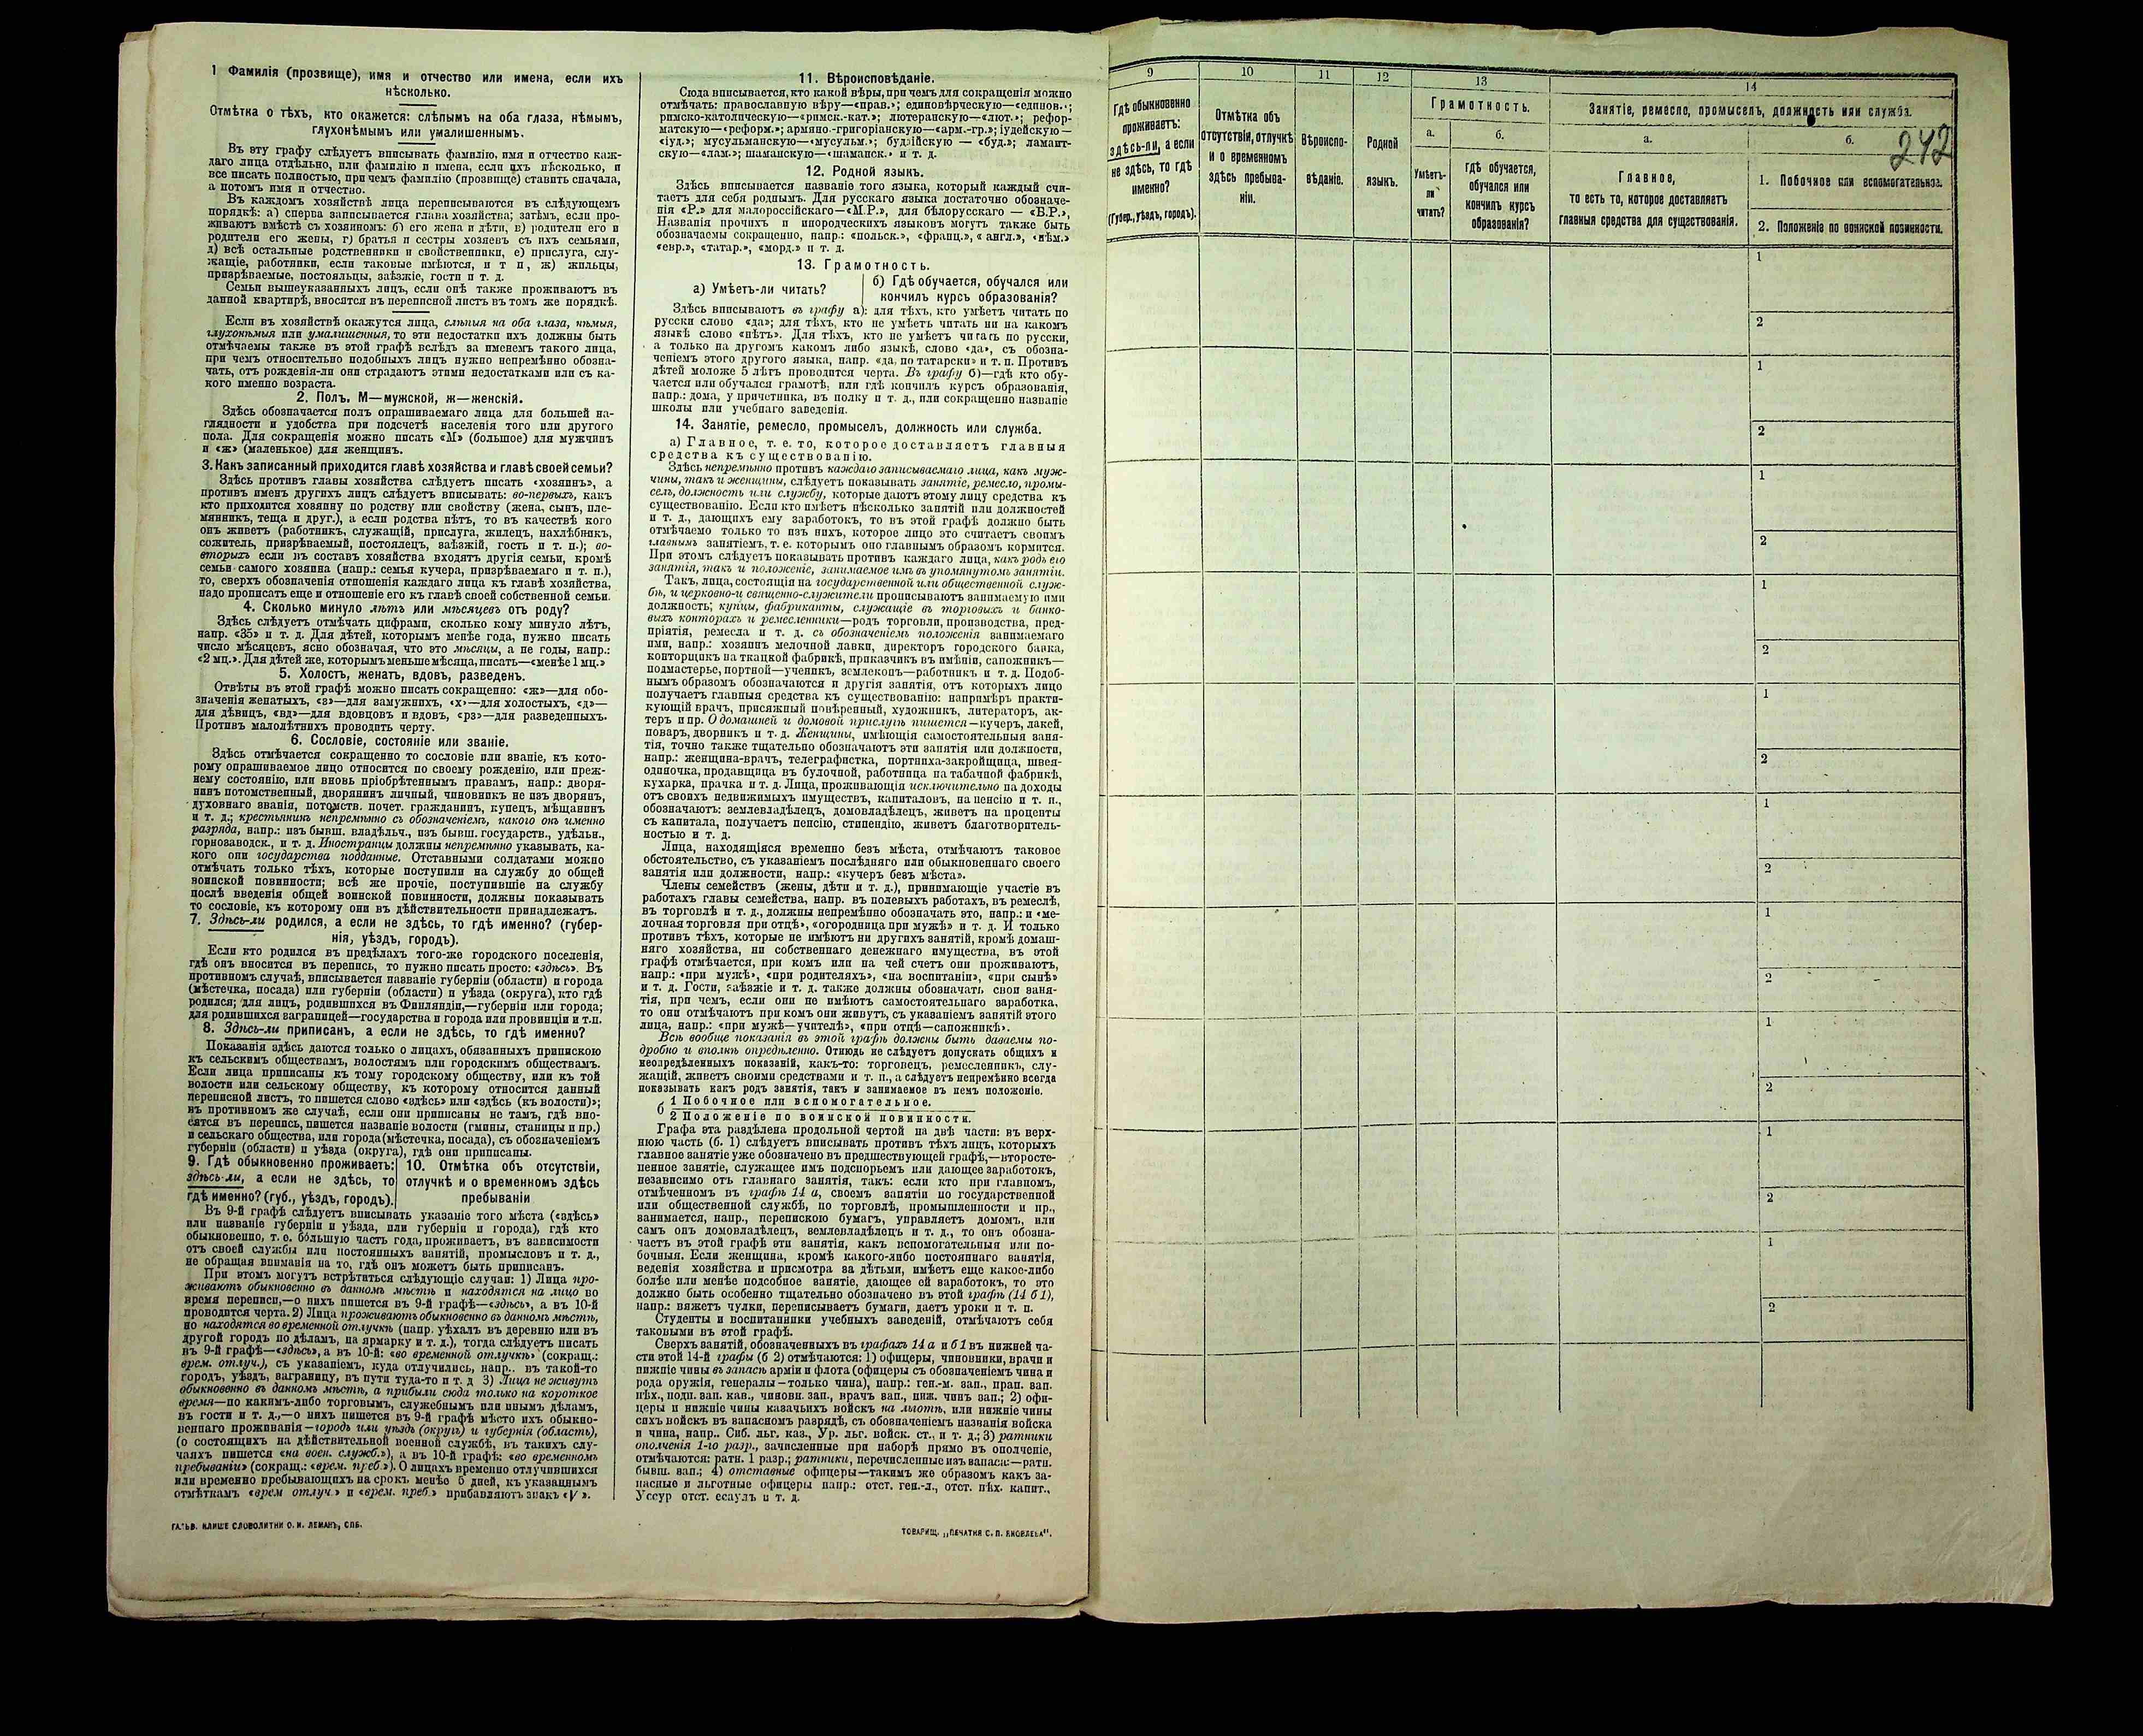 1 Фамилія (прозвище), имя и отчество или имена, если ихъ
нѣсколько.
Отмѣтка о тѣхъ, кто окажется: слѣпымъ на оба глаза, нѣмымъ,
глухонѣмымъ или умалишеннымъ.
Въ эту графу слѣдуетъ вписывать фамилію, имя и отчество каж-
даго лица отдѣльно, или фамилію и имена, если ихъ нѣсколько, и
все писать полностью, при чемъ фамилію (прозвище) ставить сначала,
а потомъ имя и отчество.
Въ каждомъ хозяйствѣ лица переписываются въ слѣдующемъ
порядкѣ: а) сперва записывается глава хозяйства; затѣмъ, если про-
живаютъ вмѣстѣ съ хозяиномъ: б) его жена и дѣти, в) родители его и
родители его жены, г) братья и сестры хозяевъ съ ихъ семьями,
д) всѣ остальные родственники и свойственники, е) прислуга, слу-
жащіе, работники, если таковые имѣются, и т п, ж) жильцы,
призрѣваемые, постояльцы, заѣзжіе, гости и т. д.
Семьи вышеуказанныхъ лицъ, если онѣ также проживаютъ въ
данной квартирѣ, вносятся въ переписной листъ въ томъ же порядкѣ.
Если въ хозяйствѣ окажутся лица, слѣпыя на оба глаза, нѣмыя,
глухонѣмыя или умалишенныя, то эти недостатки ихъ должны быть
отмѣчаемы также въ этой графѣ вслѣдъ за именемъ такого лица,
при чемъ относительно подобныхъ лицъ нужно непремѣнно обозна-
чать, отъ рожденія-ли они страдаютъ этими недостатками или съ ка-
кого именно возраста.
2. Полъ. М—мужской, ж—женскій.
Здѣсь обозначается полъ опрашиваемаго лица для большей на-
глядности и удобства при подсчетѣ населенія того или другого
пола. Для сокращенія можно писать «М» (большое) для мужчинъ
и «ж» (маленькое) для женщинъ.
3. Какъ записанный приходится главѣ хозяйства и главѣ своей семьи?
Здѣсь противъ главы хозяйства слѣдуетъ писать «хозяинъ», а
противъ именъ другихъ лицъ слѣдуетъ вписывать: во-первыхъ, какъ
кто приходится хозяину по родству или свойству (жена, сынъ, пле-
мянникъ, теща и друг.), а если родства нѣтъ, то въ качествѣ кого
онъ живетъ (работникъ, служащій, прислуга, жилецъ, нахлѣбникъ,
сожитель, призрѣваемый, постоялецъ, заѣзжій, гость и т. п.); во-
вторыхъ если въ составъ хозяйства входятъ другія семьи, кромѣ
семьи самого хозяина (напр.: семья кучера, призрѣваемаго и т. п.),
то, сверхъ обозначенія отношенія каждаго лица къ главѣ хозяйства,
надо прописать еще и отношеніе его къ главѣ своей собственной семьи.
4. Сколько минуло лѣтъ или мѣсяцевъ отъ роду?
Здѣсь слѣдуетъ отмѣчать цифрами, сколько кому минуло лѣтъ,
напр. «35» и т. д. Для дѣтей, которымъ менѣе года, нужно писать
число мѣсяцевъ, ясно обозначая, что это мѣсяцы, а не годы, напр.:
«2 мц.». Для дѣтей же, которымъ меньше мѣсяца, писать—«менѣе 1 мц.»
5. Холостъ, женатъ, вдовъ, разведенъ.
Отвѣты въ этой графѣ можно писать сокращенно: «ж»—для обо-
значенія женатыхъ, «з»—для замужнихъ, «х»—для холостыхъ, «д»—
для дѣвицъ, «вд»—для вдовцовъ и вдовъ, «рз»—для разведенныхъ.
Противъ малолѣтнихъ проводить черту.
6. Сословіе, состояніе или званіе.
Здѣсь отмѣчается сокращенно то сословіе или званіе, къ кото-
рому опрашиваемое лицо относится по своему рожденію, или преж-
нему состоянію, или вновь пріобрѣтеннымъ правамъ, напр.: дворя-
нинъ потомственный, дворянинъ личный, чиновникъ не изъ дворянъ,
духовнаго званія, потомств. почет. гражданинъ, купецъ, мѣщанинъ
и т. д.; крестьянинъ непремѣнно съ обозначеніемъ, какого онъ именно
разряда, напр.: изъ бывш. владѣльч., изъ бывш. государств., удѣльн.,
горнозаводск., и т. д. Иностранцы должны непремѣнно указывать, ка-
кого они государства подданные. Отставными солдатами можно
отмѣчать только тѣхъ, которые поступили на службу до общей
воинской повинности; всѣ же прочіе, поступившіе на службу
послѣ введенія общей воинской повинности, должны показывать
то сословіе, къ которому они въ дѣйствительности принадлежатъ.
7. Здѣсь-ли родился, а если не здѣсь, то гдѣ именно? (губер-
нія, уѣздъ, городъ).
Если кто родился въ предѣлахъ того-же городского поселенія,
гдѣ онъ вносится въ перепись, то нужно писать просто: «здѣсь». Въ
противномъ случаѣ, вписывается названіе губерніи (области) и города
(мѣстечка, посада) или губерніи (области) и уѣзда (округа), кто гдѣ
родился; для лицъ, родившихся въ Финляндіи,—губерніи или города;
для родившихся заграницей—государства и города или провинціи и т.п.
8. Здѣсь-ли приписанъ, а если не здѣсь, то гдѣ именно?
Показанія здѣсь даются только о лицахъ, обязанныхъ припискою
къ сельскимъ обществамъ, волостямъ или городскимъ обществамъ.
Если лица приписаны къ тому городскому обществу, или къ той
волости или сельскому обществу, къ которому относится данный
переписной листъ, то пишется слово «здѣсь» или «здѣсь (къ волости)»;
въ противномъ же случаѣ, если они приписаны не тамъ, гдѣ вно-
сятся въ перепись, пишется названіе волости (гмины, станицы и пр.)
и сельскаго общества, или города (мѣстечка, посада), съ обозначеніемъ
губерніи (области) и уѣзда (округа), гдѣ они приписаны.
9. Гдѣ обыкновенно проживаетъ:
здѣсь-ли, а если не здѣсь, то
гдѣ именно? (губ., уѣздъ, городъ).
10. Отмѣтка объ отсутствіи,
отлучкѣ и о временномъ здѣсь
пребываніи
Въ 9-й графѣ слѣдуетъ вписывать указаніе того мѣста («здѣсь»
или названіе губерніи и уѣзда, или губерніи и города), гдѣ кто
обыкновенно, т. е. бо́льшую часть года, проживаетъ, въ зависимости
отъ своей службы или постоянныхъ занятій, промысловъ и т. д.,
не обращая вниманія на то, гдѣ онъ можетъ быть приписанъ.
При этомъ могутъ встрѣтиться слѣдующіе случаи: 1) Лица про-
живаютъ обыкновенно въ данномъ мѣстѣ и находятся на лицо во
время переписи,—о нихъ пишется въ 9-й графѣ—«здѣсь», а въ 10-й
проводится черта. 2) Лица проживаютъ обыкновенно въ данномъ мѣстѣ,
но находятся во временной отлучкѣ (напр. уѣхалъ въ деревню или въ
другой городъ по дѣламъ, на ярмарку и т. д.), тогда слѣдуетъ писать
въ 9-й графѣ—«здѣсь», а въ 10-й: «во временной отлучкѣ» (сокращ.:
врем. отлуч.), съ указаніемъ, куда отлучились, напр.. въ такой-то
городъ, уѣздъ, заграницу, въ пути туда-то и т. д 3) Лица не живутъ
обыкновенно въ данномъ мѣстѣ, а прибыли сюда только на короткое
время—по какимъ-либо торговымъ, служебнымъ или инымъ дѣламъ,
въ гости и т. д.,—о нихъ пишется въ 9-й графѣ мѣсто ихъ обыкно-
веннаго проживанія—городъ или уѣздъ (округъ) и губернія (область),
(о состоящихъ на дѣйствительной военной службѣ, въ такихъ слу-
чаяхъ пишется «на воен. служб.»), а въ 10-й графѣ: «во временномъ
пребываніи» (сокращ.: «врем. преб.»). О лицахъ временно отлучившихся
или временно пребывающихъ на срокъ менѣе 5 дней, къ указаннымъ
отмѣткамъ «врем отлуч.» и «врем. преб.» прибавляютъ знакъ «V».
ГАЛЬВ. КЛИШЕ СЛОВОЛИТНИ О. И. ЛЕМАНЪ, СПБ.
11. Вѣроисповѣданіе.
Сюда вписывается, кто какой вѣры, при чемъ для сокращенія можно
отмѣчать: православную вѣру—«прав.»; единовѣрческую—«единов.»;
римско-католическую—«римск.-кат.»; лютеранскую—«лют.»; рефор-
матскую—«реформ.»; армяно-григоріанскую—«арм.-гр.»; іудейскую—
«іуд.»; мусульманскую—«мусульм.»; буддійскую — «буд.»; ламаит-
скую—«лам.»; шаманскую—«шаманск.» и т. д.
12. Родной языкъ.
Здѣсь вписывается названіе того языка, который каждый счи-
таетъ для себя роднымъ. Для русскаго языка достаточно обозначе-
нія «Р.» для малороссійскаго—«М.Р.», для бѣлорусскаго — «Б.Р.»,
Названія прочихъ и инородческихъ языковъ могутъ также быть
обозначаемы сокращенно, напр.: «польск.», «франц.», « англ.», «нѣм.»
«евр.», «татар.», «морд.» и т. д.
13. Грамотность.
а) Умѣетъ-ли читать?
б) Гдѣ обучается, обучался или
кончилъ курсъ образованія?
Здѣсь вписываютъ въ графу а): для тѣхъ, кто умѣетъ читать по
русски слово «да»; для тѣхъ, кто не умѣетъ читать ни на какомъ
языкѣ слово «нѣтъ». Для тѣхъ, кто не умѣетъ читать по русски,
а только на другомъ какомъ либо языкѣ, слово «да», съ обозна-
ченіемъ этого другого языка, напр. «да, по татарски» и т. п. Противъ
дѣтей моложе 5 лѣтъ проводится черта. Въ графу б)—гдѣ кто обу-
чается или обучался грамотѣ, или гдѣ кончилъ курсъ образованія,
напр.: дома, у причетника, въ полку и т. д., или сокращенно названіе
школы или учебнаго заведенія.
14. Занятіе, ремесло, промыселъ, должность или служба.
а) Главное, т. е. то, которое доставляетъ главныя
средства къ существованію.
Здѣсь непремѣнно противъ каждаго записываемаго лица, какъ муж-
чины, такъ и женщины, слѣдуетъ показывать занятіе, ремесло, промы-
селъ, должность или службу, которые даютъ этому лицу средства къ
существованію. Если кто имѣетъ нѣсколько занятій или должностей
и т. д., дающихъ ему заработокъ, то въ этой графѣ должно быть
отмѣчаемо только то изъ нихъ, которое лицо это считаетъ своимъ
главнымъ занятіемъ, т. е. которымъ оно главнымъ образомъ кормится.
При этомъ слѣдуетъ показывать противъ каждаго лица, какъ родъ его
занятія, такъ и положеніе, занимаемое имъ въ упомянутомъ занятіи.
Такъ, лица, состоящія на государственной или общественной служ-
бѣ, и церковно-и священно-служители прописываютъ занимаемую ими
должность; купцы, фабриканты, служащіе въ торговыхъ и банко-
выхъ конторахъ и ремесленники—родъ торговли, производства, пред-
пріятія, ремесла и т. д. съ обозначеніемъ положенія занимаемаго
ими, напр.: хозяинъ мелочной лавки, директоръ городского банка,
конторщикъ на ткацкой фабрикѣ, приказчикъ въ имѣніи, сапожникъ—
подмастерье, портной—ученикъ, землекопъ—работникъ и т. д. Подоб-
нымъ образомъ обозначаются и другія занятія, отъ которыхъ лицо
получаетъ главныя средства къ существованію: напримѣръ практи-
кующій врачъ, присяжный повѣренный, художникъ, литераторъ, ак-
теръ и пр. О домашней и домовой прислугѣ пишется—кучеръ, лакей,
поваръ, дворникъ и т. д. Женщины, имѣющія самостоятельныя заня-
тія, точно также тщательно обозначаютъ эти занятія или должности,
напр.: женщина-врачъ, телеграфистка, портниха-закройщица, швея-
одиночка, продавщица въ булочной, работница на табачной фабрикѣ,
кухарка, прачка и т. д. Лица, проживающія исключительно на доходы
отъ своихъ недвижимыхъ имуществъ, капиталовъ, на пенсію и т. п.,
обозначаютъ: землевладѣлецъ, домовладѣлецъ, живетъ на проценты
съ капитала, получаетъ пенсію, стипендію, живетъ благотворитель-
ностью и т. д.
Лица, находящіяся временно безъ мѣста, отмѣчаютъ таковое
обстоятельство, съ указаніемъ послѣдняго или обыкновеннаго своего
занятія или должности, напр.: «кучеръ безъ мѣста».
Члены семействъ (жены, дѣти и т. д.), принимающіе участіе въ
работахъ главы семейства, напр. въ полевыхъ работахъ, въ ремеслѣ,
въ торговлѣ и т. д., должны непремѣнно обозначать это, напр.: и «ме-
лочная торговля при отцѣ», «огородница при мужѣ» и т. д. И только
противъ тѣхъ, которые не имѣютъ ни другихъ занятій, кромѣ домаш-
няго хозяйства, ни собственнаго денежнаго имущества, въ этой
графѣ отмѣчается, при комъ или на чей счетъ они проживаютъ,
напр.: «при мужѣ», «при родителяхъ», «на воспитаніи», «при сынѣ»
и т. д. Гости, заѣзжіе и т. д. также должны обозначать свои заня-
тія, при чемъ, если они не имѣютъ самостоятельнаго заработка,
то они отмѣчаютъ при комъ они живутъ, съ указаніемъ занятій этого
лица, напр.: «при мужѣ—учителѣ», «при отцѣ—сапожникѣ».
Всѣ вообще показанія въ этой графѣ должны быть даваемы по-
дробно и вполнѣ опредѣленно. Отнюдь не слѣдуетъ допускать общихъ и
неопредѣленныхъ показаній, какъ-то: торговецъ, ремесленникъ, слу-
жащій, живетъ своими средствами и т. п., а слѣдуетъ непремѣнно всегда
показывать какъ родъ занятія, такъ и занимаемое въ немъ положеніе.
б 1 Побочное или вспомогательное.
2 Положеніе по воинской повинности.
Графа эта раздѣлена продольной чертой на двѣ части: въ верх-
нюю часть (б. 1) слѣдуетъ вписывать противъ тѣхъ лицъ, которыхъ
главное занятіе уже обозначено въ предшествующей графѣ,—второсте-
пенное занятіе, служащее имъ подспорьемъ или дающее заработокъ,
независимо отъ главнаго занятія, такъ: если кто при главномъ,
отмѣченномъ въ графѣ 14 а, своемъ занятіи по государственной
или общественной службѣ, по торговлѣ, промышленности и пр.,
занимается, напр., перепискою бумагъ, управляетъ домомъ, или
самъ онъ домовладѣлецъ, землевладѣлецъ и т. д., то онъ обозна-
чаетъ въ этой графѣ эти занятія, какъ вспомогательныя или по-
бочныя. Если женщина, кромѣ какого-либо постояннаго занятія,
веденія хозяйства и присмотра за дѣтьми, имѣетъ еще какое-либо
болѣе или менѣе подсобное занятіе, дающее ей заработокъ, то это
должно быть особенно тщательно обозначено въ этой графѣ (14 б 1),
напр.: вяжетъ чулки, переписываетъ бумаги, даетъ уроки и т. п.
Студенты и воспитанники учебныхъ заведеній, отмѣчаютъ себя
таковыми въ этой графѣ.
Сверхъ занятій, обозначенныхъ въ графахъ 14 а и б 1 въ нижней ча-
сти этой 14-й графы (б 2) отмѣчаются: 1) офицеры, чиновники, врачи и
нижніе чины въ запасѣ арміи и флота (офицеры съ обозначеніемъ чина и
рода оружія, генералы—только чина), напр.: ген.-м. зап., прап. зап.
пѣх., подп. зап. кав., чиновн. зап., врачъ зап., ниж. чинъ зап.; 2) офи-
церы и нижніе чины казачьихъ войскъ на льготѣ, или нижніе чины
сихъ войскъ въ запасномъ разрядѣ, съ обозначеніемъ названія войска
и чина, напр.. Сиб. льг. каз., Ур. льг. войск. ст., и т. д.; 3) ратники
ополченія 1-го разр., зачисленные при наборѣ прямо въ ополченіе,
отмѣчаются: ратн. 1 разр.; ратники, перечисленные изъ запаса:—ратн.
бывш. зап.; 4) отставные офицеры—такимъ же образомъ какъ за-
пасные и льготные офицеры напр.: отст. ген.-л., отст. пѣх. капит.,
Уссур отст. есаулъ и т. д.
ТОВАРИЩ. „ПЕЧАТНЯ С. П. ЯКОВЛЕВА".
9 10 11 12 13 14
Гдѣ обыкновенно
проживаетъ:
здѣсь-ли, а если
не здѣсь, то гдѣ
именно?
(Губер., уѣздъ, городъ).
Отмѣтка объ
отсутствіи, отлучкѣ
и о временномъ
здѣсь пребыва-
ніи.
Вѣроиспо-
вѣданіе.
Родной
языкъ.
Грамотность.
а.
Умѣетъ-
ли
читать?
б.
Гдѣ обучается,
обучался или
кончилъ курсъ
образованія?
Занятіе, ремесло, промыселъ, должность или служба.
242
а.
Главное,
то есть то, которое доставляетъ
главныя средства для существованія.
б.
1. Побочное или вспомогательное.
2. Положеніе по воинской повинности.
1
2
1
2
1
2
1
2
1
2
1
2
1
2
1
2
1
2
1
2